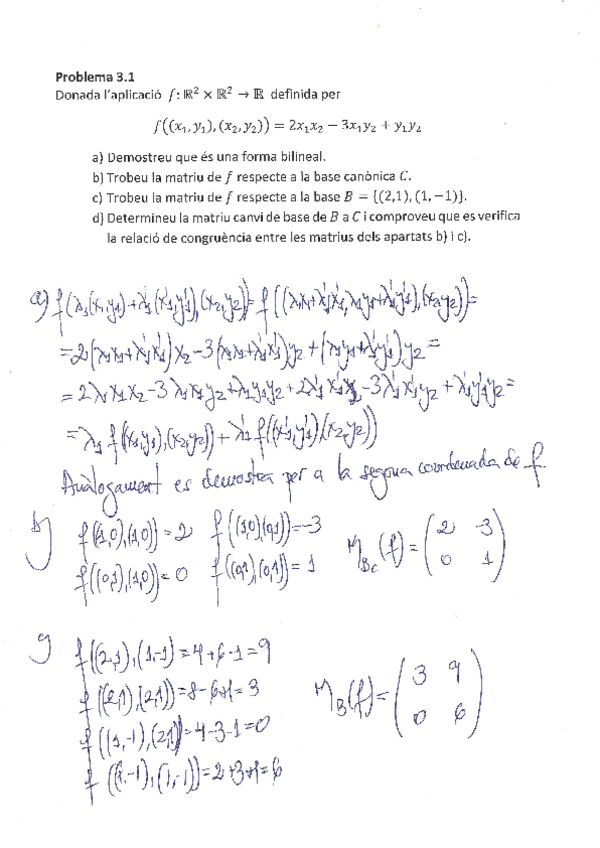 Problema 3.1
Donada l'aplicació f: ℝ² × ℝ² → ℝ definida per
f((x₁, y₁), (x₂, y₂)) = 2x₁x₂ − 3x₁y₂ + y₁y₂
a) Demostreu que és una forma bilineal.
b) Trobeu la matriu de f respecte a la base canònica C.
c) Trobeu la matriu de f respecte a la base B = {(2,1), (1, −1)}.
d) Determineu la matriu canvi de base de B a C i comproveu que es verifica
la relació de congruència entre les matrius dels apartats b) i c).
a) f(λ₁(x₁,y₁)+λ₁'(x₁',y₁'),(x₂,y₂)) = f((λ₁x₁+λ₁'x₁', λ₁y₁+λ₁'y₁'),(x₂,y₂)) =
= 2(λ₁x₁+λ₁'x₁')x₂ − 3(λ₁x₁+λ₁'x₁')y₂ + (λ₁y₁+λ₁'y₁')y₂ =
= 2λ₁x₁x₂ − 3λ₁x₁y₂ + λ₁y₁y₂ + 2λ₁'x₁'x₂ − 3λ₁'x₁'y₂ + λ₁'y₁'y₂ =
= λ₁ f((x₁,y₁),(x₂,y₂)) + λ₁' f((x₁',y₁'),(x₂,y₂))
Anàlogament es demostra per a la segona coordenada de f.
b) f((1,0),(1,0)) = 2 f((1,0),(0,1)) = −3 M_Bc(f) = (2 −3
f((0,1),(1,0)) = 0 f((0,1),(0,1)) = 1 0 1)
c) f((2,1),(1,-1)) = 4+6-1 = 9
f((2,1),(2,1)) = 8-6+1 = 3 M_B(f) = (3 9
f((1,-1),(2,1)) = 4-3-1 = 0 0 6)
f((1,-1),(1,-1)) = 2+3+1 = 6